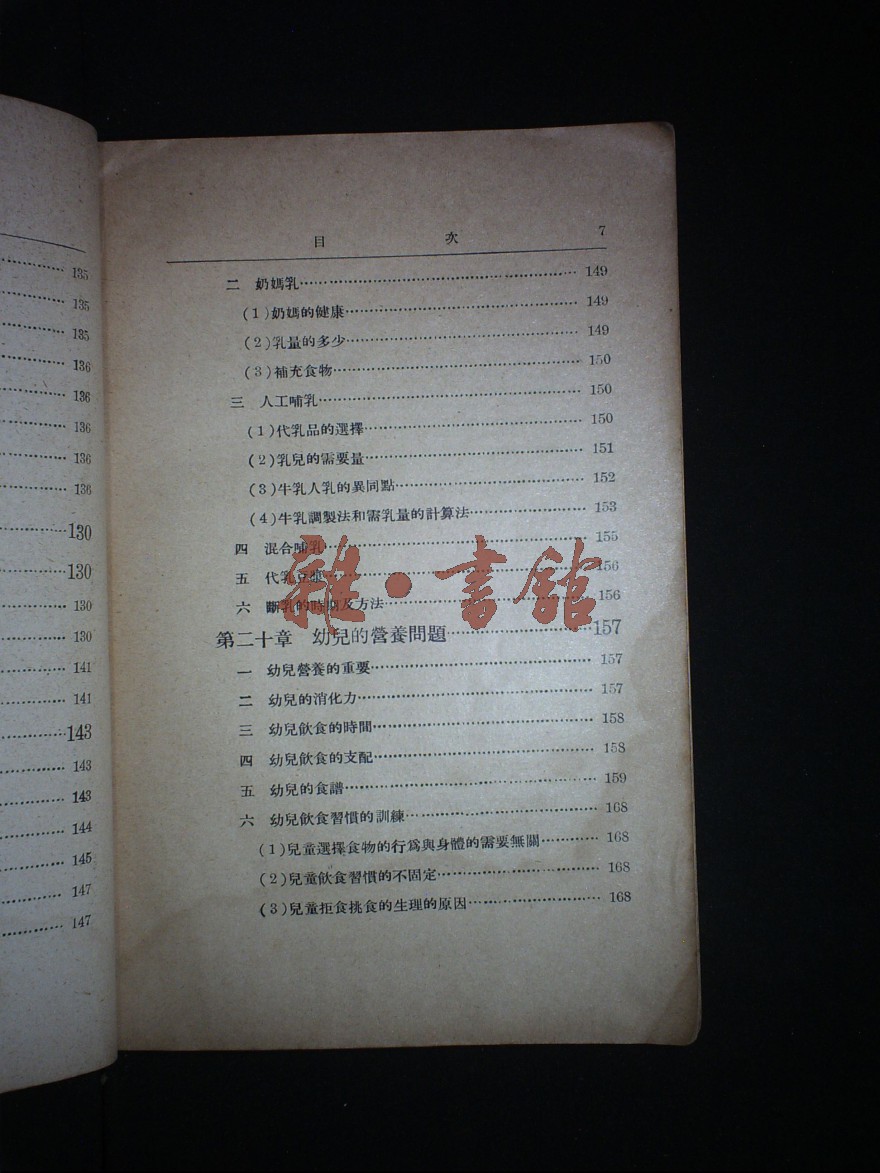 135
135
135
136
136
136
136
136
130
130
130
130
141
141
143
143
143
144
145
147
147
目 次 7
二 奶媽乳 149
(1)奶媽的健康 149
(2)乳量的多少 149
(3)補充食物 150
三 人工哺乳 150
(1)代乳品的選擇 150
(2)乳兒的需要量 151
(3)牛乳人乳的異同點 152
(4)牛乳調製法和需乳量的計算法 153
四 混合哺乳 155
五 代乳豆漿 156
六 斷乳的時期及方法 156
雜·書館
第二十章 幼兒的營養問題 157
一 幼兒營養的重要 157
二 幼兒的消化力 157
三 幼兒飲食的時間 158
四 幼兒飲食的支配 158
五 幼兒的食譜 159
六 幼兒飲食習慣的訓練 168
(1)兒童選擇食物的行爲與身體的需要無關 168
(2)兒童飲食習慣的不固定 168
(3)兒童拒食挑食的生理的原因 168